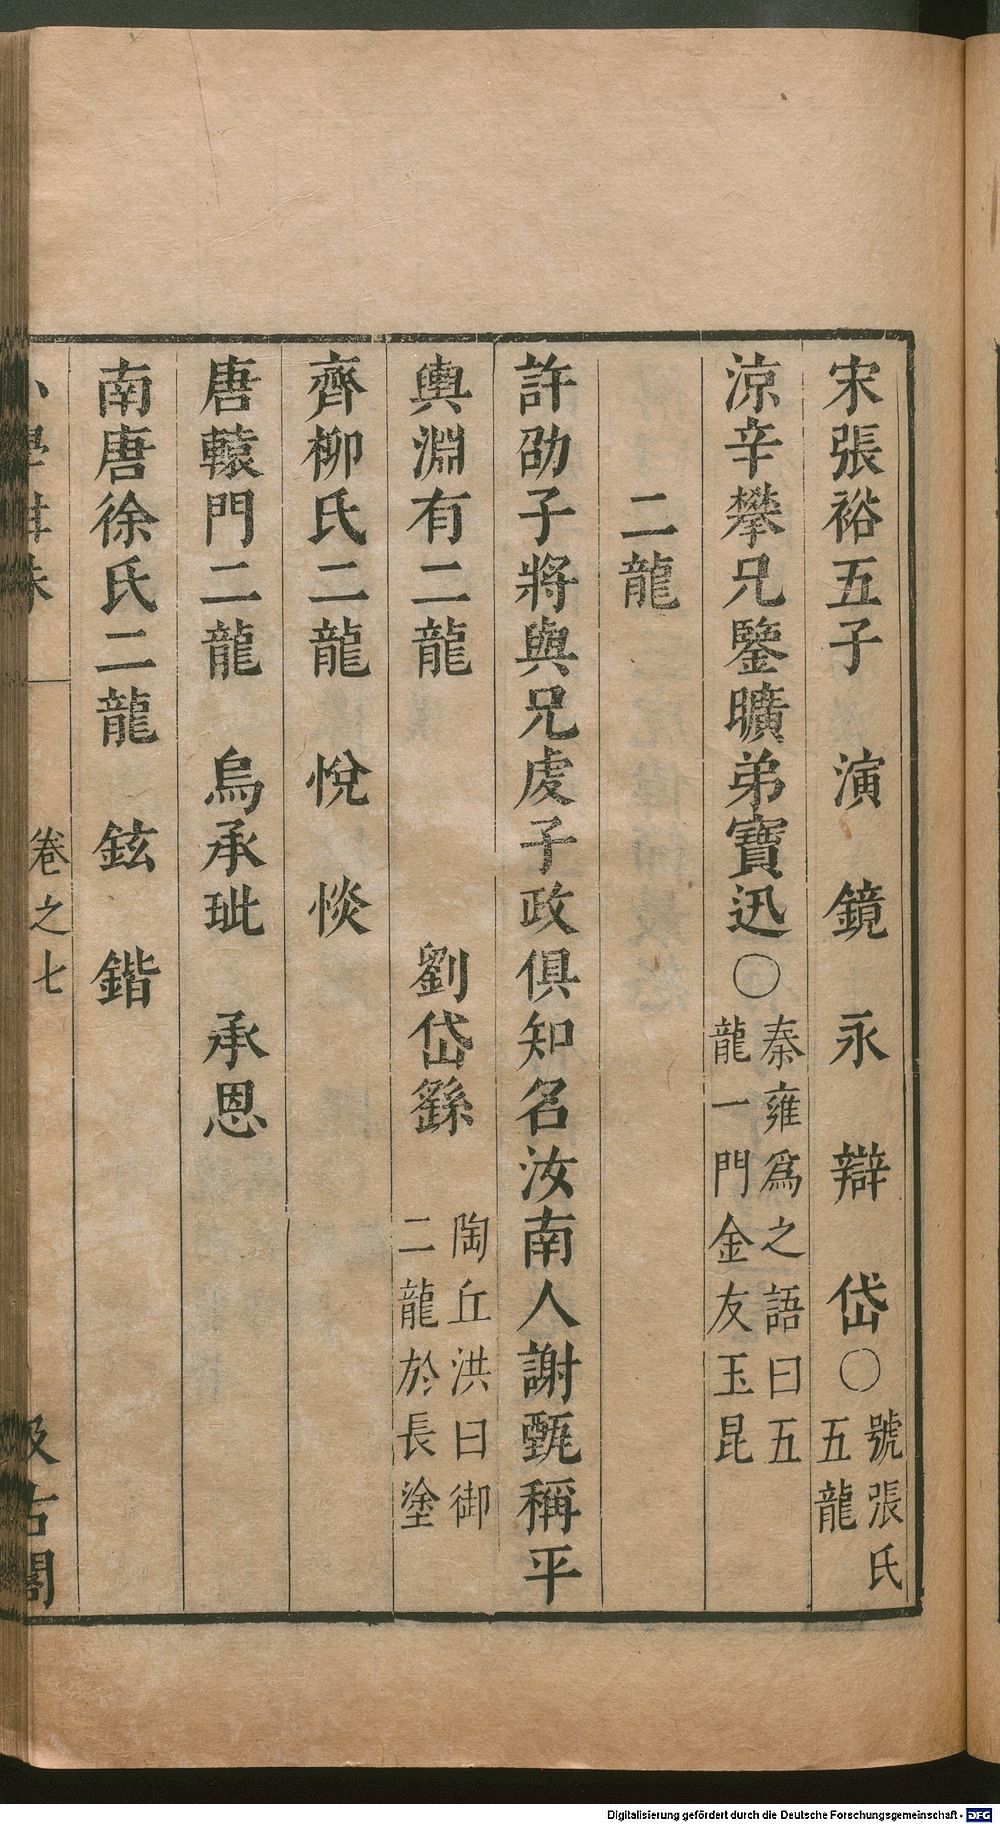 宋張裕五子　演　鏡　永　辯　岱〇號張氏五龍
涼辛攀兄鑒曠弟寶迅〇秦雍爲之語曰五龍一門金友玉昆
二龍
許劭子將與兄虔子政俱知名汝南人謝甄稱平
輿淵有二龍　劉岱繇　陶丘洪曰御二龍於長塗
齊柳氏二龍　悅　惔
唐轅門二龍　烏承玼　承恩
南唐徐氏二龍　鉉　鍇
小學紺珠　卷之七　汲古閣
Digitalisierung gefördert durch die Deutsche Forschungsgemeinschaft - DFG